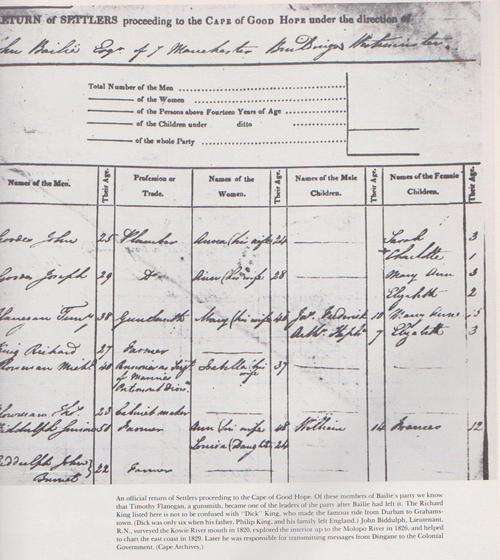 RETURN of SETTLERS proceeding to the CAPE of GOOD HOPE under the direction of
John Bailie Esqr. of 7 Manchester Buildings Westminster.
Total Number of the Men
of the Women
of the Persons above Fourteen Years of Age
of the Children under ditto
of the whole Party
Names of the Men. Their Age. Profession or Trade. Names of the Women. Their Age. Names of the Male Children. Their Age. Names of the Female Children. Their Age.
John 25 Plumber (his wife 24 Sarah 3
Charlotte 1
Joseph 29 Do Ann (his wife 28 Mary Ann 3
Elizabeth 2
38 Gunsmith Mary (his wife 40 Frederick 10 Mary Anne 5
7 Elizabeth 3
King Richard 27 Farmer
40 Isabella (his wife 37
of Marines
23 Cabinet maker
Biddulph Simon 50 Farmer Ann (his wife 48 William 14 Frances 12
Louisa (Daughter 24
Biddulph John 22 Farmer
Burnet
An official return of Settlers proceeding to the Cape of Good Hope. Of these members of Bailie's party we know
that Timothy Flanegan, a gunsmith, became one of the leaders of the party after Bailie had left it. The Richard
King listed here is not to be confused with "Dick" King, who made the famous ride from Durban to Grahams-
town. (Dick was only six when his father, Philip King, and his family left England.) John Biddulph, Lieutenant,
R.N., surveyed the Kowie River mouth in 1820, explored the interior up to the Molopo River in 1826, and helped
to chart the east coast in 1829. Later he was responsible for transmitting messages from Dingane to the Colonial
Government. (Cape Archives.)